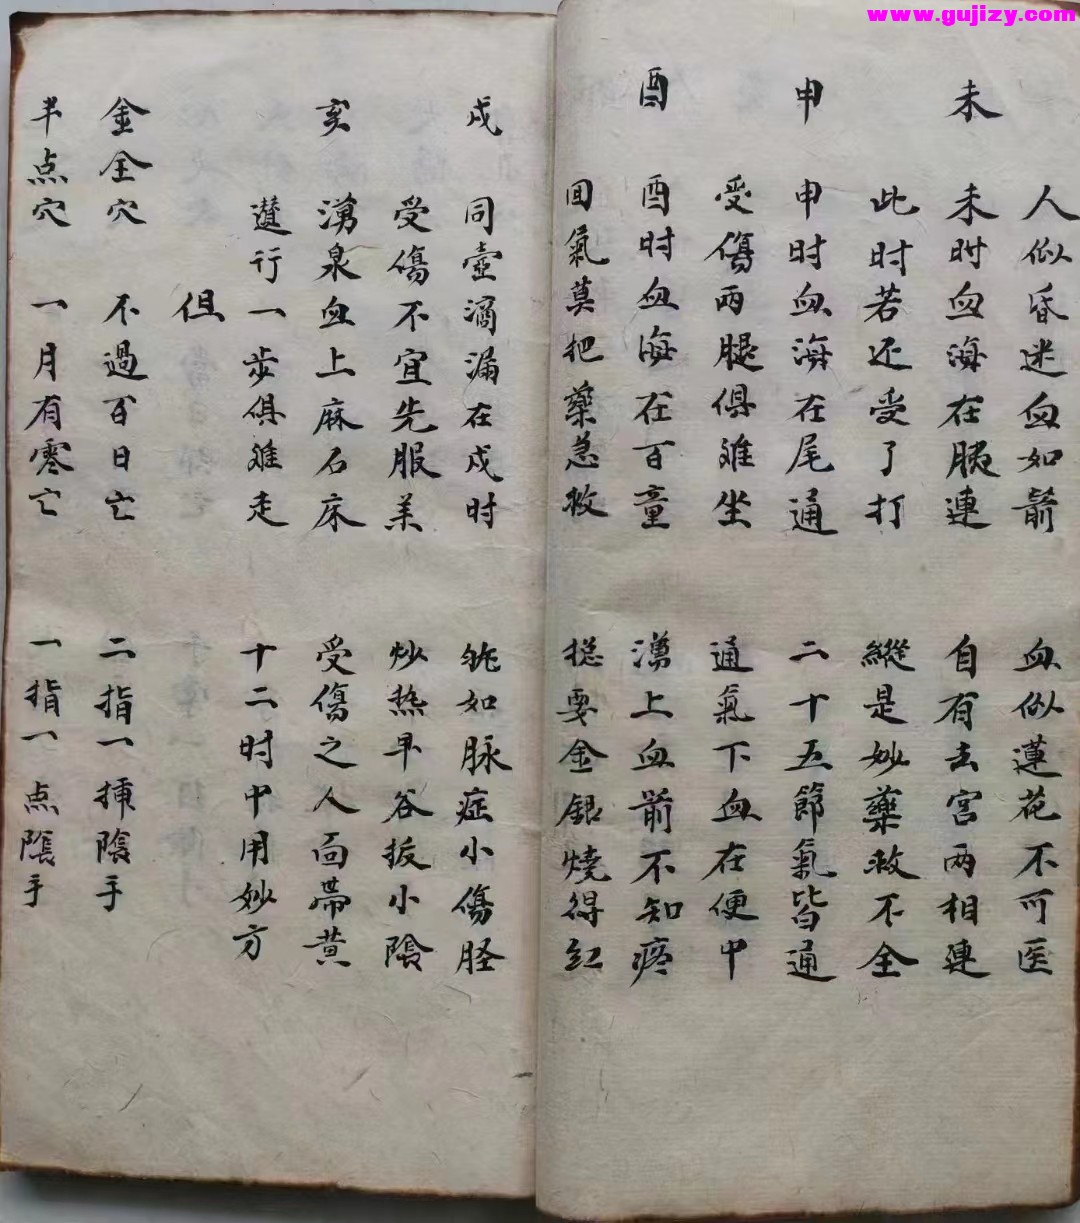 www.gujizy.com
人似昏迷血如箭 血似蓮花不可医
未 未时血海在腿連 自有去宮兩相連
此时若还受了打 縱是妙藥救不全
申 申时血海在尾通 二十五節氣皆通
受傷兩腿俱难坐 通氣下血在便中
酉 酉时血海在百童 湧上血箭不知疼
回氣莫把藥急救 揔要金銀燒得紅
戍 同壺滴漏在戍时 如脉症小傷胫
受傷不宜先服羙 炒热早谷扳小陰
亥 湧泉血上麻石床 受傷之人面帶黄
進行一步俱难走 十二时中用妙方
但
金全穴 不過百日亡 二指一揷陰手
半点穴 一月有零亡 一指一点陰手